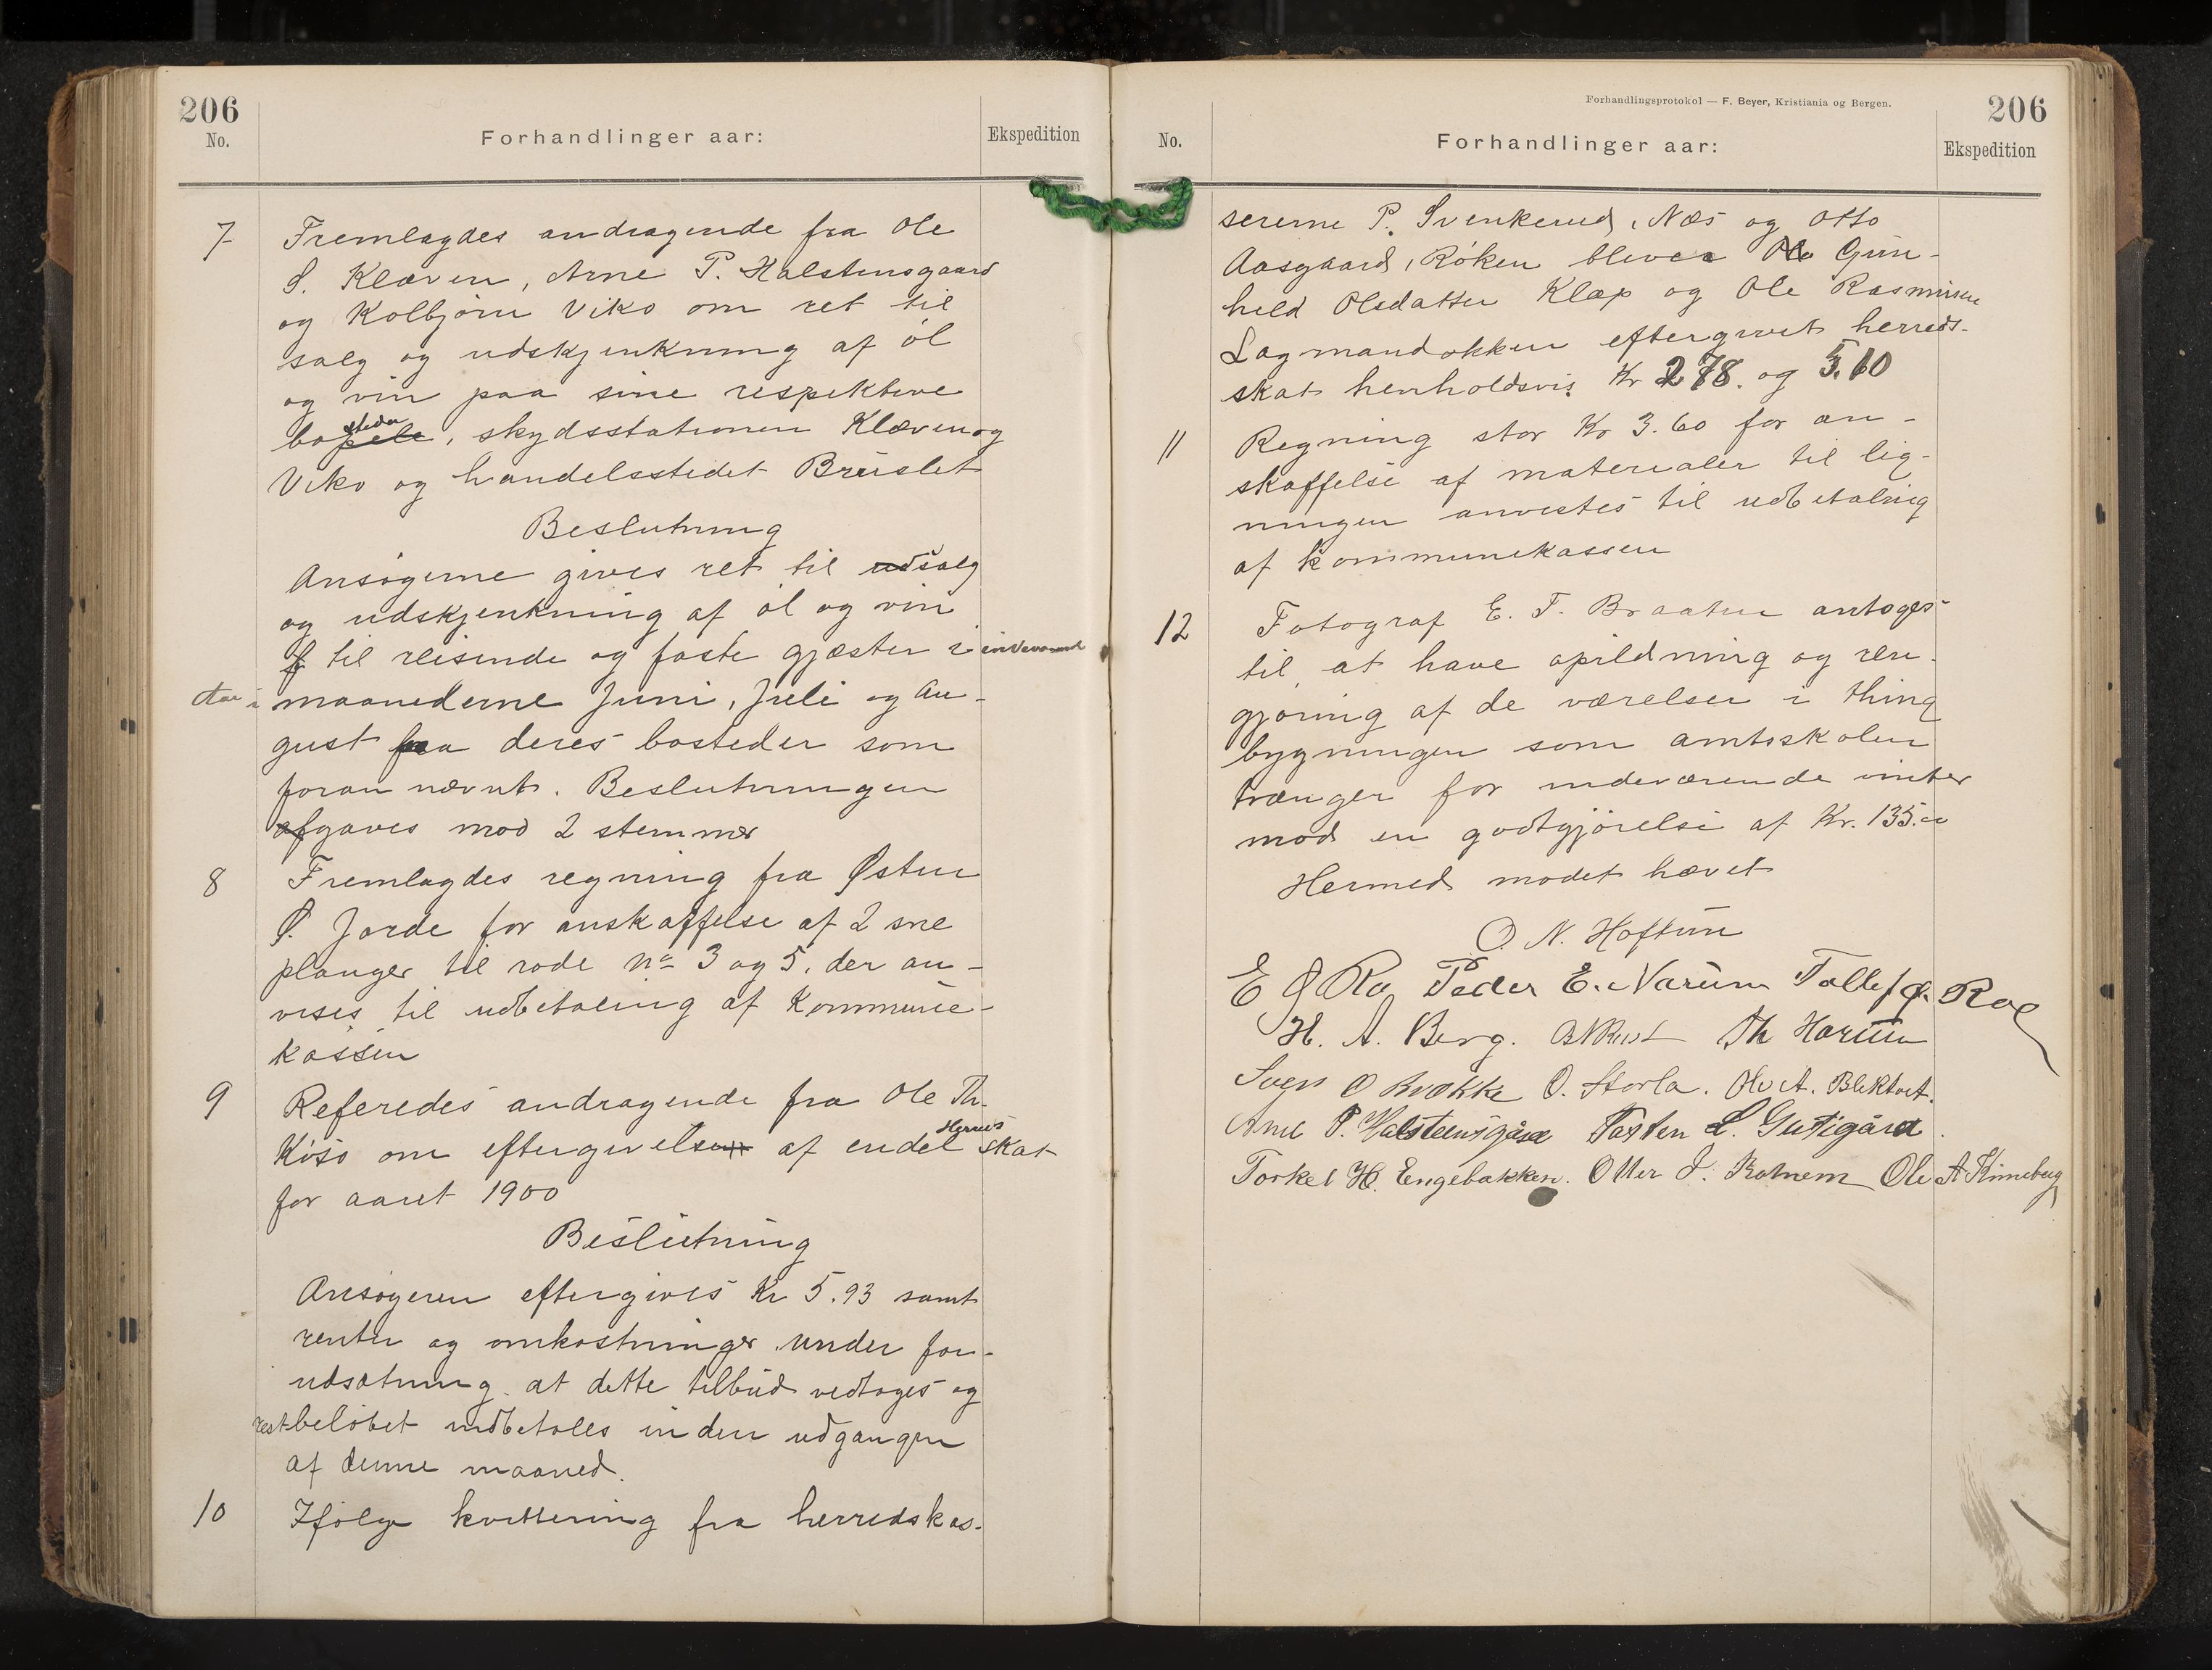 206
No.
Forhandlinger aar:
Ekspedition
7
Fremlagdes andragende fra Ole
S. Kleven, Arne P. Halstensgaard
og Kolbjørn Viko om ret til
salg og udskjenkning af øl
og vin paa sine respektive
bopæle steder, skydsstationen Kleven og
Viko og handelsstedet Breislet
Beslutning
Ansøgerne gives ret til udsalg
og udskjenkning af øl og vin
til reisende og faste gjæster i indeværende
Aar i maanederne Juni, Juli og Au-
gust fra deres bosteder som
foran nævnt. Beslutningen
afgaves mod 2 stemmer
8
Fremlagdes regning fra Østen
Ø. Jorde for anskaffelse af 2 sne
plauger til rode No 3 og 5, der an-
vises til udbetaling af Kommune-
kassen
9
Referedes andragende fra Ole Th.
Kisø om eftergivelsen af endel Herreds skat
for aaret 1900
Beslutning
Ansøgeren eftergives Kr 5.93 samt
renter og omkostninger under for-
udsætning at dette tilbud vedtages og
restbeløbet indbetales inden udgangen
af denne maaned.
10
Ifølge kvittering fra herredskas-
Forhandlingsprotokol — F. Beyer, Kristiania og Bergen.
206
No.
Forhandlinger aar:
Ekspedition
sererne P. Svenkerud, Næs og Otto
Aasgaard, Røken blever Gun-
hild Olsdatter Klep og Ole Rasmusen
Lagmandokken eftergivet herreds-
skat henholdsvis Kr 2.78. og 5.10
11
Regning stor Kr 3.60 for an-
skaffelse af materialer til lig-
ningen anvistes til udbetaling
af kommunekassen
12
Fotograf E. T. Braaten antoges
til at have opildning og ren-
gjøring af de værelser i thing
bygningen som amtskolen
trænger for indeværende vinter
mod en godtgjørelse af Kr. 135.00
Hermed mødet hævet
O. N. Hoftun
E G Ro Peder E. Narum Tollef G. Roe
H. A. Berg. Th Harum
Sven O Brække O. Storla. Ole A. Blektvet.
Arne P. Halsteensgård Tosten L. Gutigård
Torkel H. Engebakken. Otter J. Rotnem Ole A Kinneberg